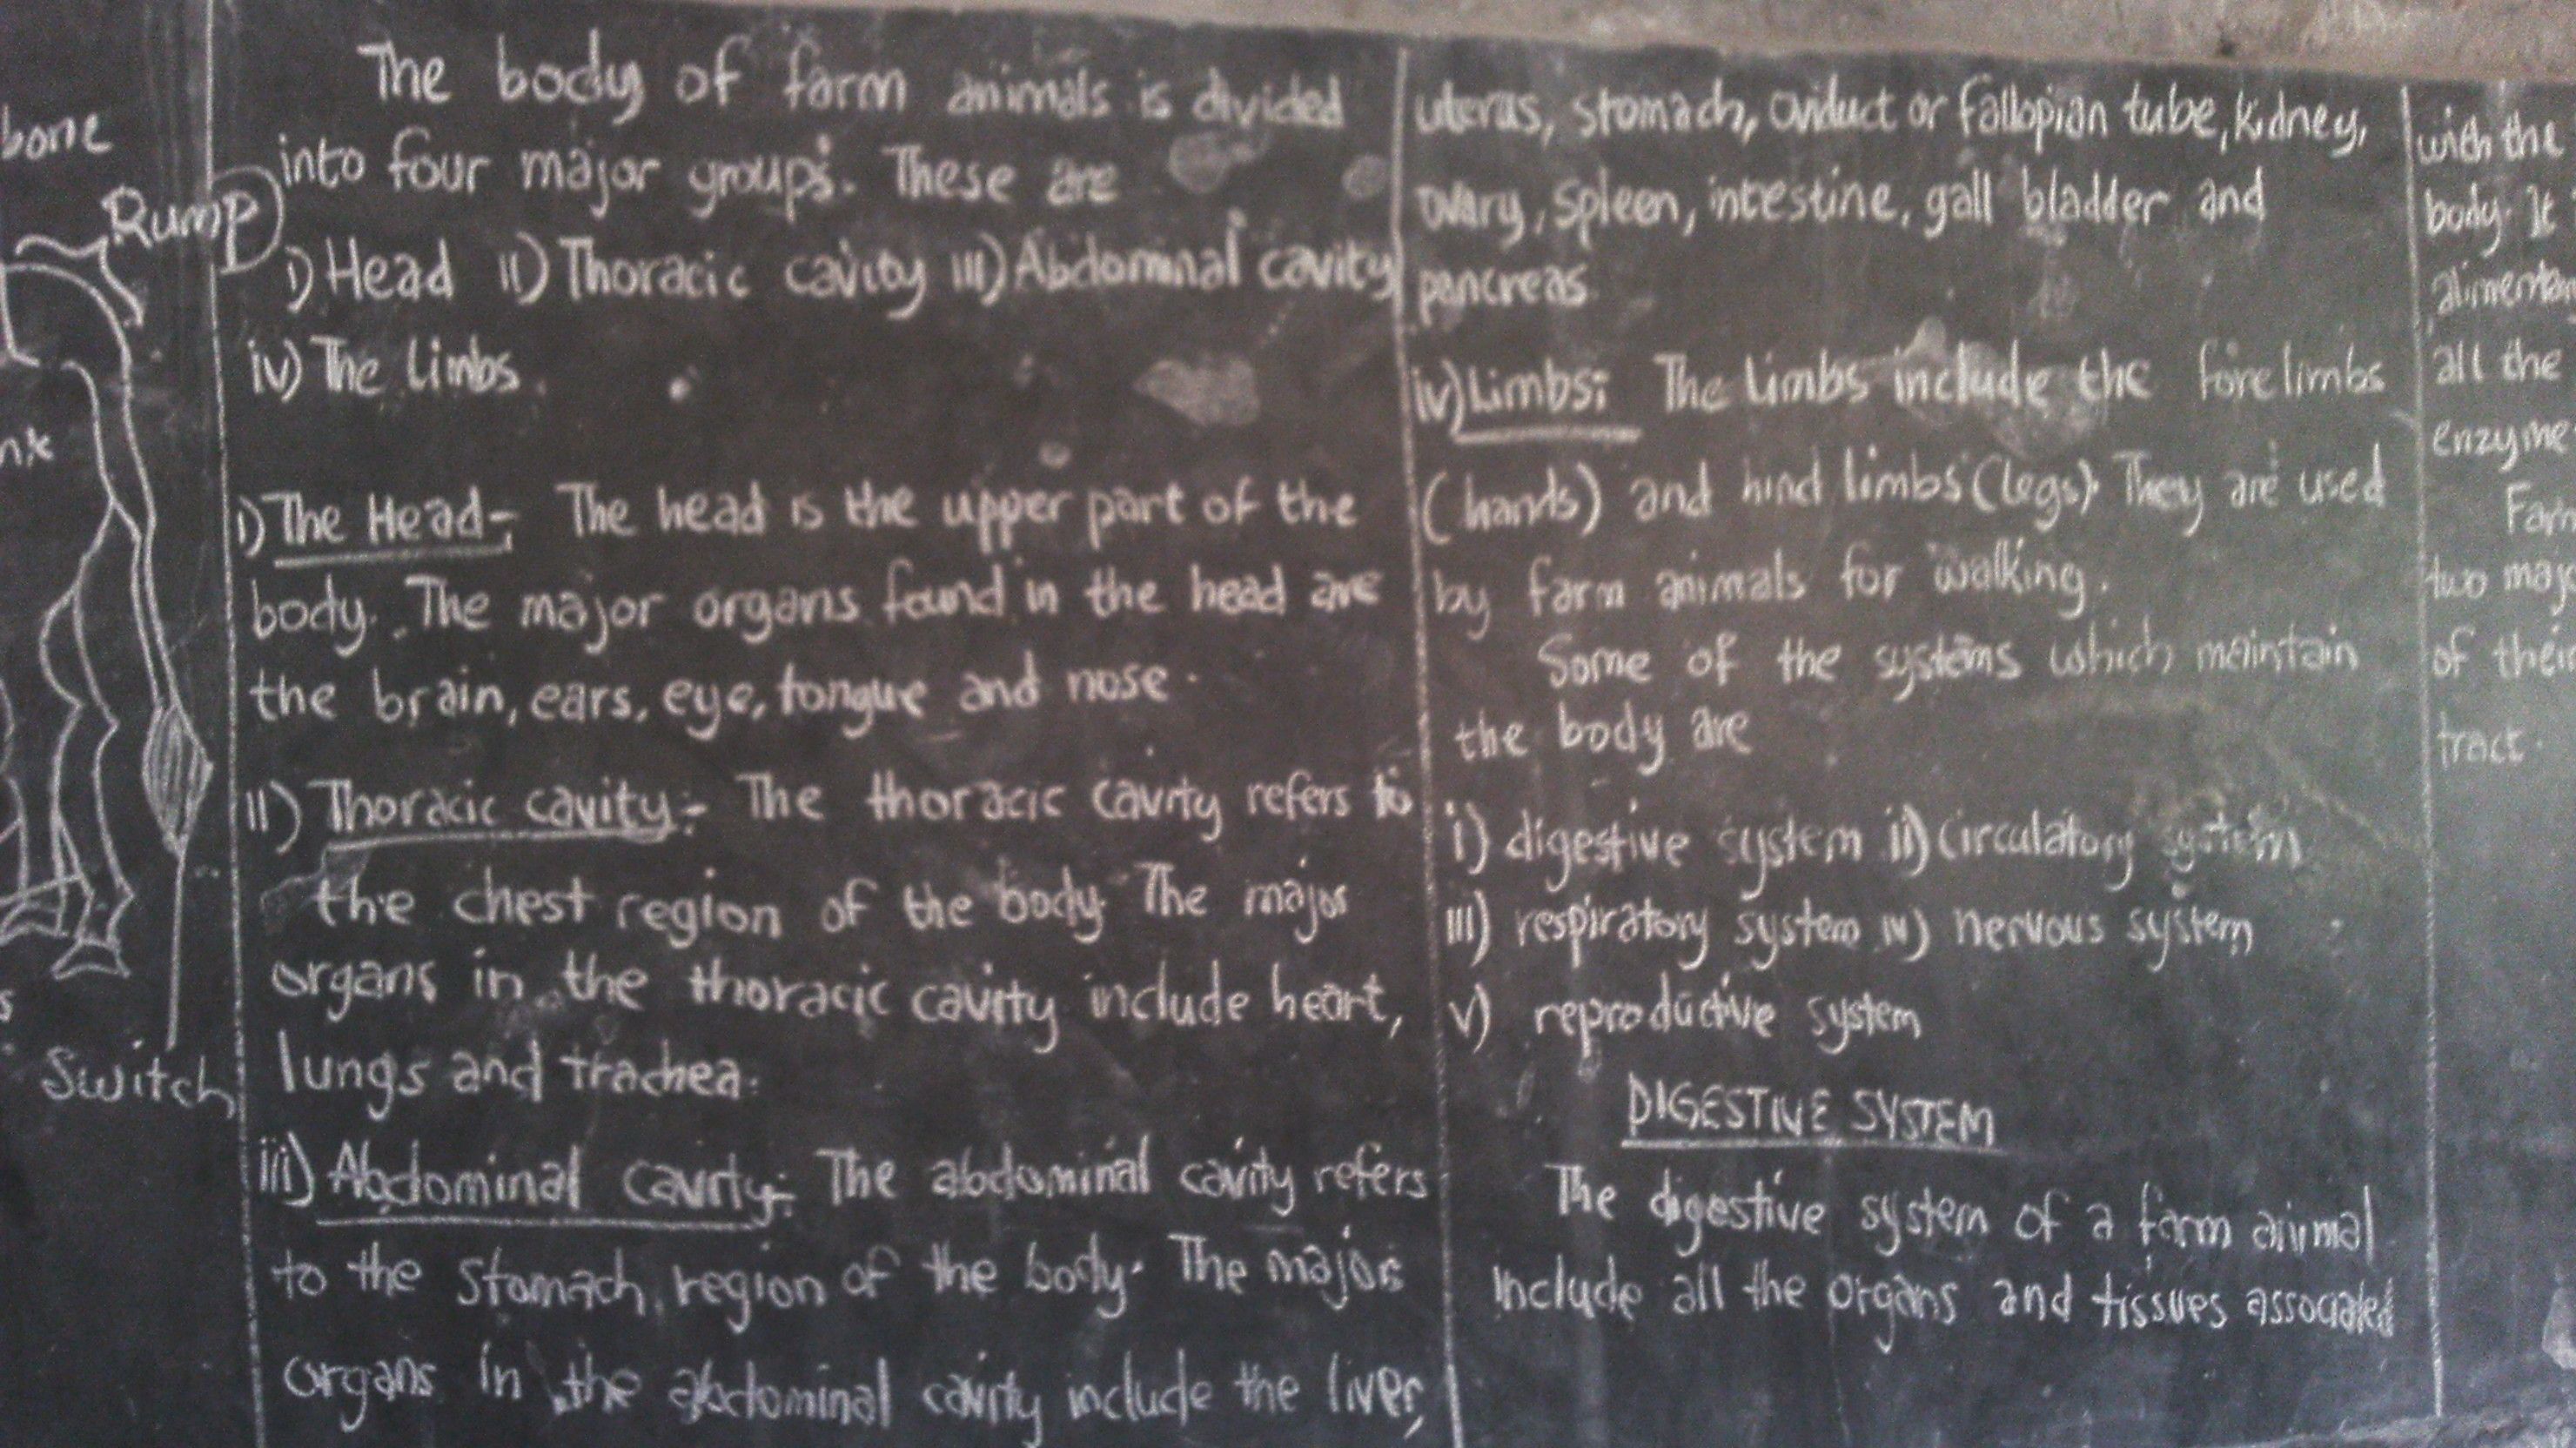 bone
Rump
nk
s
Switch
The body of farm animals is divided
into four major groups. These are
i) Head ii) Thoracic cavity iii) Abdominal cavity
iv) The Limbs.
i) The Head:- The head is the upper part of the
body. The major organs found in the head are
the brain, ears, eye, tongue and nose.
ii) Thoracic cavity:- The thoracic cavity refers to
the chest region of the body. The major
organs in the thoracic cavity include heart,
lungs and trachea.
iii) Abdominal cavity:- The abdominal cavity refers
to the stomach region of the body. The major
organs in the abdominal cavity include the liver,
uterus, stomach, oviduct or fallopian tube, kidney,
ovary, spleen, intestine, gall bladder and
pancreas
iv) Limbs: The Limbs include the fore limbs
(hands) and hind limbs (legs). They are used
by farm animals for walking.
Some of the systems which maintain
the body are
i) digestive system ii) circulatory system
iii) respiratory system iv) nervous system
v) reproductive system
DIGESTIVE SYSTEM
The digestive system of a farm animal
include all the organs and tissues associated
with the
body. It
alimenta
all the
enzyme
Far
two maj
of thei
tract.